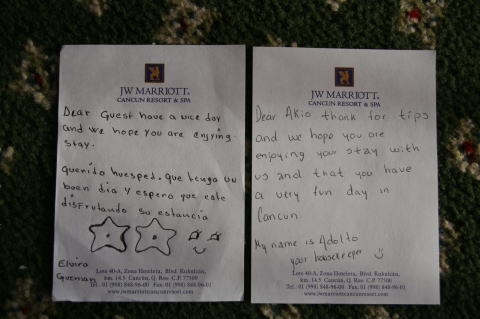 JW MARRIOTT.
CANCUN RESORT & SPA
Dear Guest have a nice day
and we hope you are enjying
stay.
querido huesped, que tenga un
buen dia y espero que este
disfrutando su estancia
Elvira
Guzman
Lote 40-A, Zona Hotelera, Blvd. Kukulcán,
km. 14.5 Cancún, Q. Roo C.P 77500
Tel.: 01 (998) 848-96-00 Fax: 01 (998) 848-96-01
www.jwmarriottcancunresort.com
JW MARRIOTT.
CANCUN RESORT & SPA
Dear Akio thank for tips
and we hope you are
enjoying your stay with
us and that you have
a very fun day in
Cancun.
My name is Adolfo
your housekeeper
Lote 40-A, Zona Hotelera, Blvd. Kukulcán,
km. 14.5 Cancún, Q. Roo C.P 77500
Tel.: 01 (998) 848-96-00 Fax: 01 (998) 848-96-01
www.jwmarriottcancunresort.com